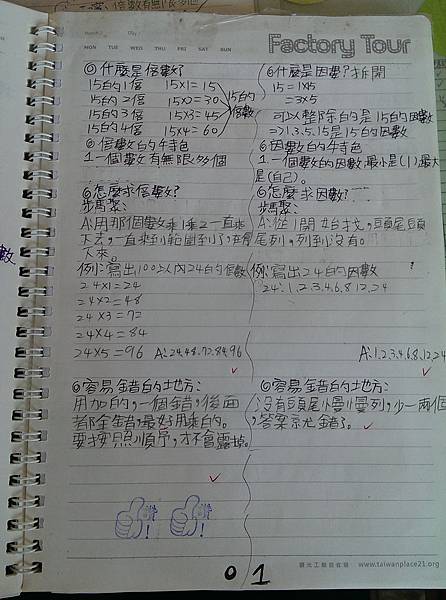 Factory Tour
MON TUE WED THU FRI SAT SUN
◎什麼是倍數?
15的1倍 15×1=15
15的2倍 15×2=30
15的3倍 15×3=45
15的4倍 15×4=60
15的倍數
◎倍數的特色
1.一個數有無限多個
◎怎麼求倍數?
步驟:
A:用那個數乘1乘2一直乘
下去,一直乘到範圍到了,
下來。
例:寫出100以內24的倍數
24×1=24
24×2=48
24×3=72
24×4=84
24×5=96 A:24.48.72.84.96
◎容易錯的地方:
用加的,一個錯,後面
都全錯,最好用乘的。
要按照順序,才不會露掉。
◎什麼是因數?拆開
15=1×15
=3×5
可以整除的是15的因數
=>1.3.5.15是15的因數
◎因數的特色
1.一個數的因數最小是(1)最大
是(自己)。
◎怎麼求因數?
步驟:
A:從1開始找,頭尾頭
尾列,列到沒有。
例:寫出24的因數
24:1.2.3.4.6.8.12.24
A:1.2.3.4.6.8.12.24
◎容易錯的地方:
沒有頭尾慢慢列,少一兩個
,答案就錯了。
觀光工廠自在遊 www.taiwanplace21.org
01